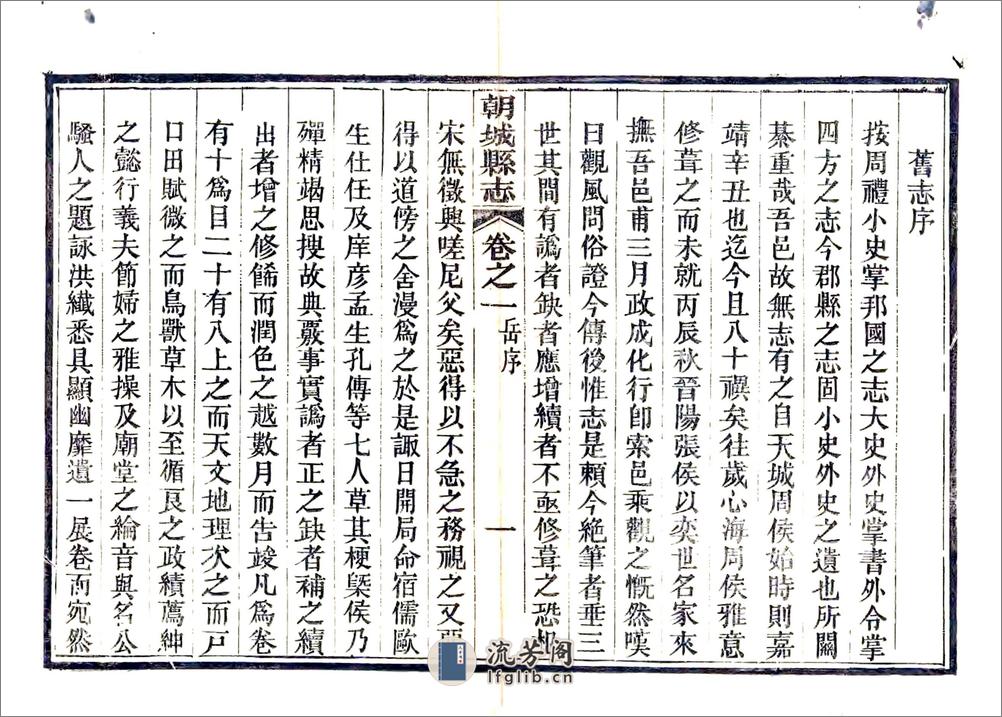 舊志序
按周禮小史掌邦國之志大史外史掌書外令掌
四方之志今郡縣之志固小史外史之遺也所關
綦重哉吾邑故無志有之自天城周侯始時則嘉
靖辛丑也迄今且八十禩矣往歲心海周侯雅意
修葺之而未就丙辰秋晉陽張侯以奕世名家來
撫吾邑甫三月政成化行卽索邑乘觀之慨然嘆
曰觀風問俗證今傳後惟志是賴今絶筆者垂三
世其間有譌者缺者應增續者不亟修葺之恐杞
朝城縣志
卷之一
岳序
一
宋無徵興嗟尼父矣惡得以不急之務視之又惡
得以道傍之舍漫爲之於是諏日開局命宿儒歐
生仕任及庠彦孟生孔傳等七人草其梗槩侯乃
殫精竭思搜故典覈事實譌者正之缺者補之續
出者增之修餙而潤色之越數月而告竣凡爲卷
有十爲目二十有八上之而天文地理次之而戸
口田賦微之而鳥獸草木以至循良之政績薦紳
之懿行義夫節婦之雅操及廟堂之綸音與名公
騷人之題詠洪纖悉具顯幽靡遺一展卷而宛然
流芳阁
lfglib.cn